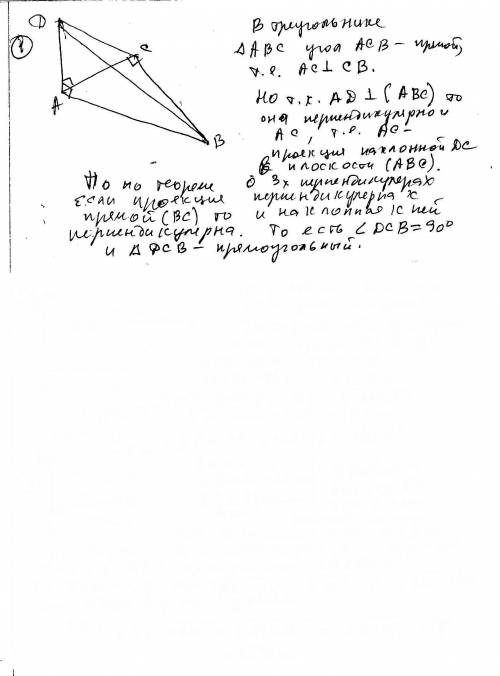 D
1
C
A
B
В треугольнике
ΔABC угол ACB – прямой,
т.е. AC⊥CB.
Но т.к. AD⊥(ABC) то
она перпендикулярной и
AC, т.е. AC –
проекция наклонной DC
в плоскости (ABC).
Но по теореме о 3х перпендикулярах
если проекция перпендикулярна к
прямой (BC) то и наклонная к ней
перпендикулярна. То есть ∠DCB=90°
и ΔDCB – прямоугольный.